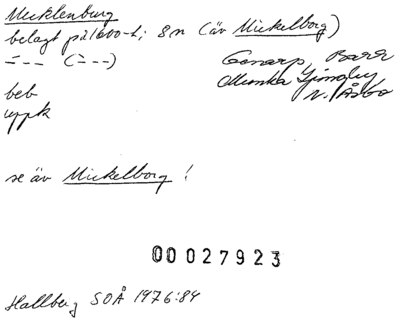 Mecklenburg
belagt på 1600-t; 8 n (äv Mickelborg)
- - - (- - -) Genarp, Bara
Munka Ljungby
N. Åsbo
beb
uppk
se äv Mickelborg!
00027923
Hallberg SOÅ 1976:84